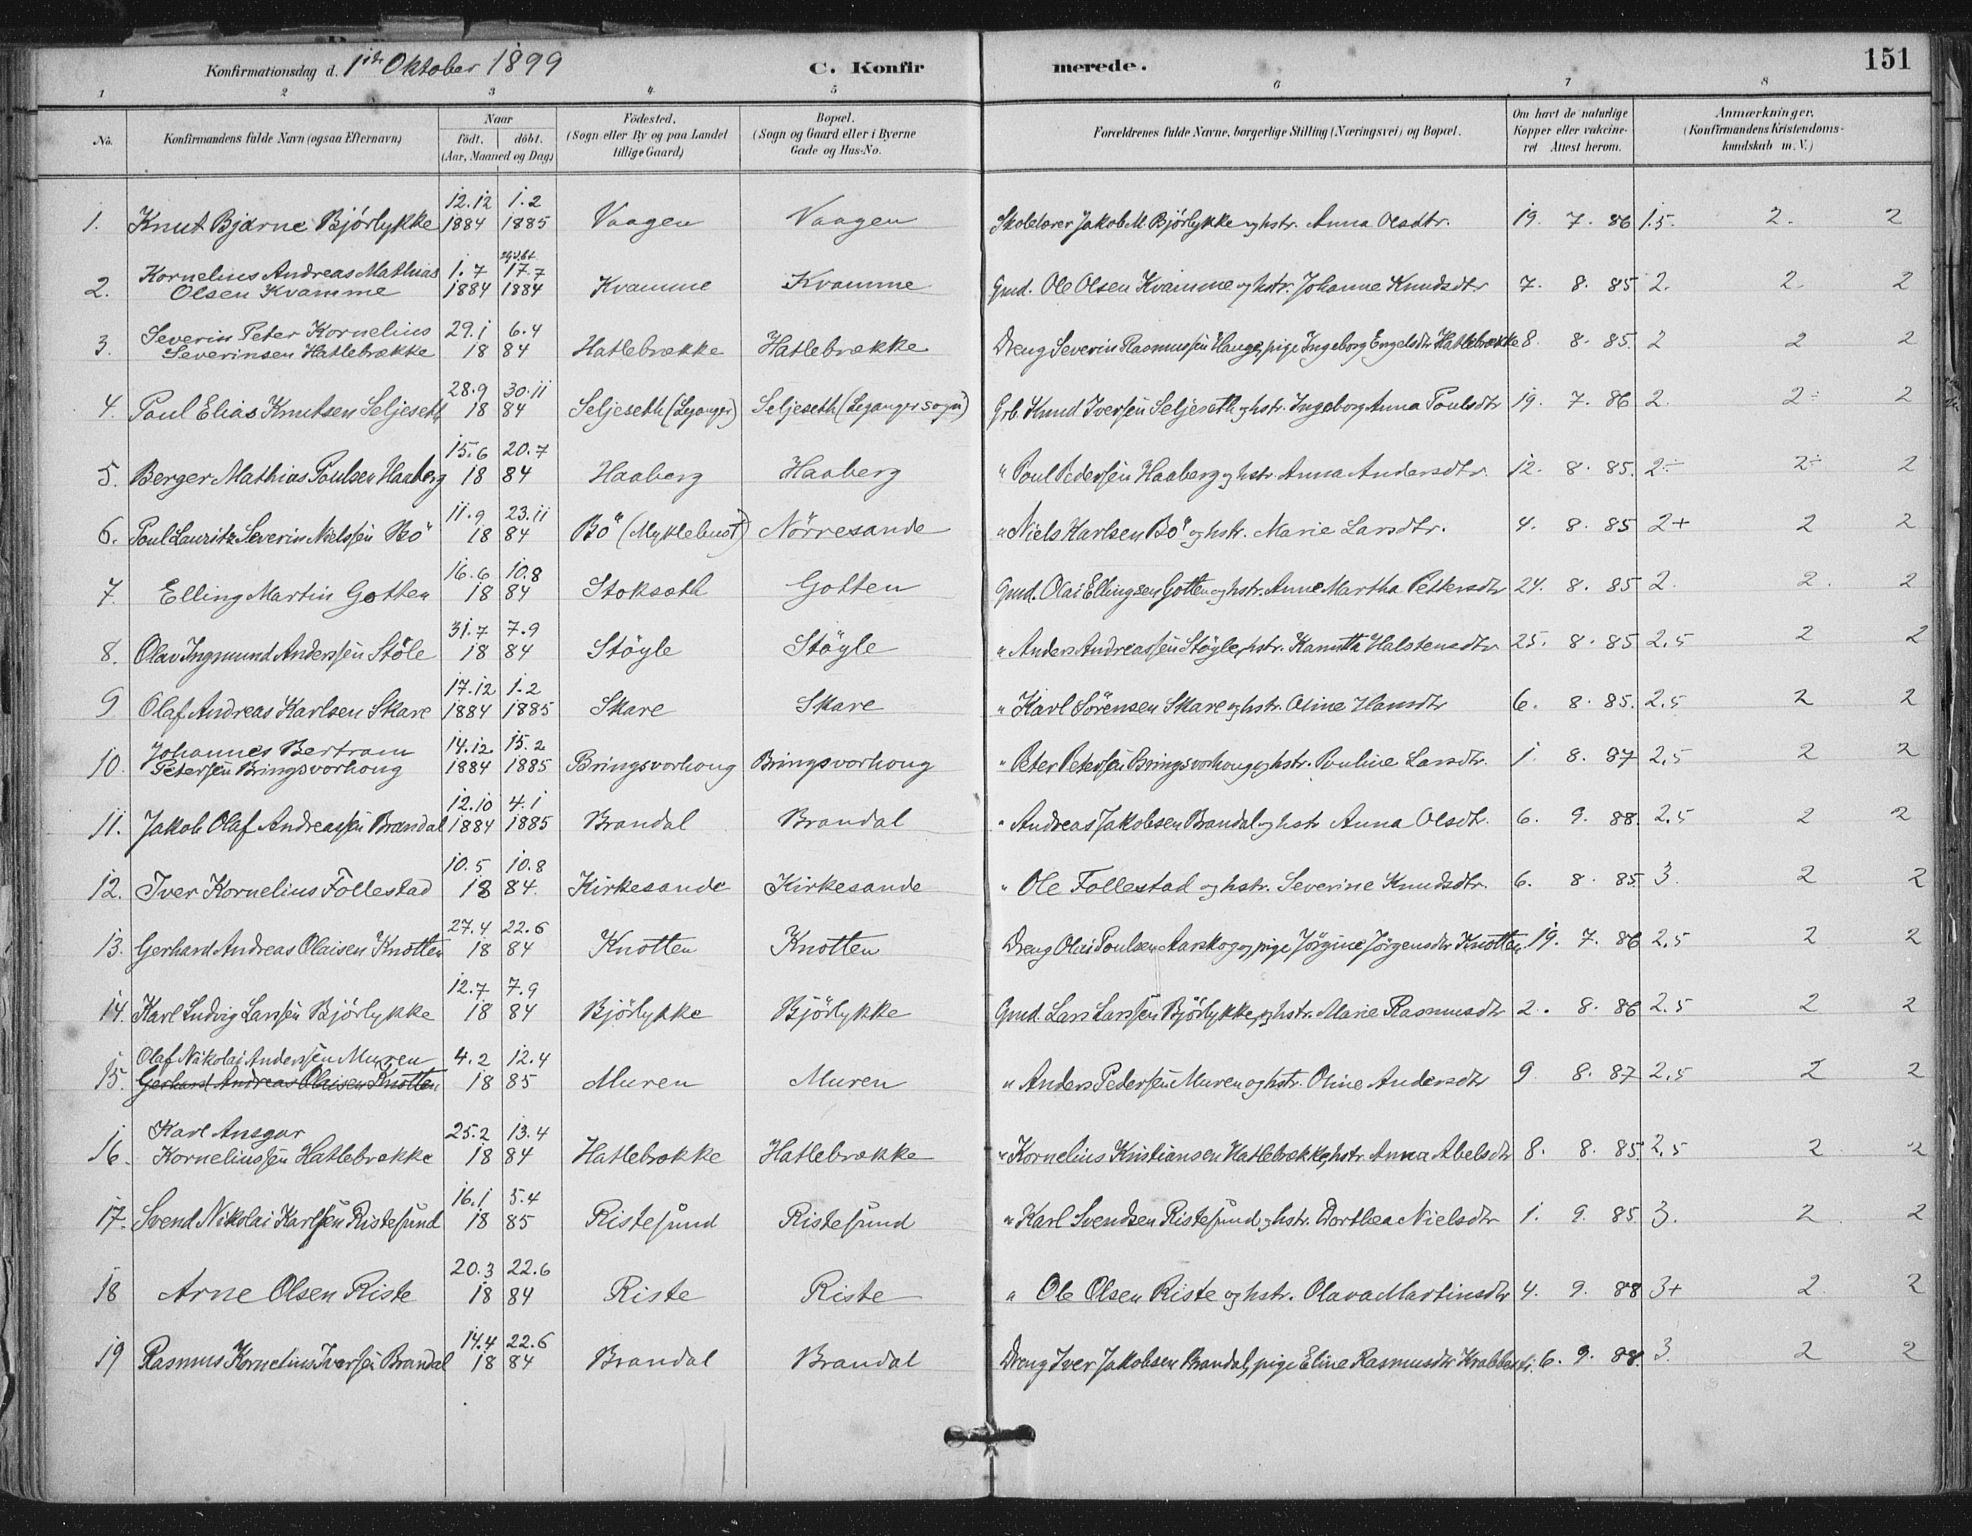 Konfirmationsdag d. 1ste Oktober 1899
C. Konfirmerede.
151
1 2 3 4 5 6 7 8
No.
Konfirmandens fulde Navn (ogsaa Efternavn)
Naar
født, døbt.
(Aar, Maaned og Dag)
Fødested.
(Sogn eller By og paa Landet
tillige Gaard)
Bopæl.
(Sogn og Gaard eller i Byerne
Gade og Hus-No.
Forældrenes fulde Navne, borgerlige Stilling (Næringsvei) og Bopæl.
Om havt de naturlige
Kopper eller vakcine-
ret Attest herom.
Anmærkninger.
(Konfirmandens Kristendoms-
kundskab m. V.)
12.12 1.2
1. Knut Bjarne Bjørlykke 1884 1885 Vaagen Vaagen Skolelærer Jakob M. Bjørlykke og hstr. Anna Olsdtr. 19. 7. 86 1.5. 2. 2
Kornelius Andreas Mathias 1.7 17.7
2. Olsen Kvamme 1884 1884 Kvamme Kvamme Gmd. Ole Olsen Kvamme og hstr. Johanne Knudsdtr 7. 8. 85 2. 2. 2
Severin Peter Kornelius 29.1 6.4
3. Severinsen Hatlebrække 18 84 Hatlebrække Hatlebrække Dreng Severin Rasmussen Hauge, pige Ingeborg Engelsdtr Hatlebrække 8. 8. 85. 2 2 2
28.9 30.11
4. Paul Elias Knutsen Seljeseth 18 84 Seljeseth (Leganger) Seljeseth (Leganger sogn) Grb. Knud Iversen Seljeseth og hstr. Ingeborg Anna Poulsdtr 19. 7. 86 2. 2÷ 2
15.6 20.7
5. Berger Mathias Poulsen Haaberg 18 84 Haaberg Haaberg " Poul Pedersen Haaberg og hstr. Anna Andersdtr. 12. 8. 85. 2÷ 2÷ 2
11.9 23.11
6. Poul Lauritz Severin Nielssen Bö 18 84 Bö (Myklebust) Nörresande " Niels Karlsen Bö og hstr. Marie Larsdtr. 4. 8. 85 2+ 2 2
16.6 10.8
7. Elling Martin Gotten 18 84 Stokseth Gotten Gmd. Olai Ellingsen Gotten og hstr. Anne Martha Pettersdtr 24. 8. 85 2. 2. 2
31.7 7.9
8. Olav Ingmund Anderssen Stöle 18 84 Stöyle Stöyle " Anders Andreassen Stöyle, hstr. Kanutta Halstensdtr 25. 8. 85 2,5 2 2
17.12 1.2
9 Olaf Andreas Karlsen Skare 1884 1885 Skare Skare " Karl Sörensen Skare og hstr. Oline Hansdtr 6. 8. 85. 2,5 2 2
Johannes Bertram 14.12 15.2
10. Petersen Bringsvorhoug 1884 1885 Bringsvorhoug Bringsvorhoug " Peter Petersen Bringsvorhoug og hstr. Pauline Larsdtr. 1. 8. 87 2,5 2 2
12.10 4.1
11. Jakob Olaf Andreassen Brandal 1884 1885 Brandal Brandal " Andreas Jakobsen Brandal og hstr Anna Olsdtr. 6. 9. 88. 2,5 2 2
10.5 10.8
12. Iver Kornelius Follestad 18 84. Kirkesande Kirkesande " Ole Follestad og hstr. Severine Knudsdtr. 6. 8. 85 3. 2 2
27.4 22.6
13. Gerhard Andreas Olaisen Knotten 18 84 Knotten Knotten Dreng Olai Poulsen Aarskog og pige Jörgine Jörgensdtr Knotten 19. 7. 86 2,5 2 2
12.7 7.9
14. Karl Ludvig Larssen Bjørlykke 18 84 Bjørlykke Bjørlykke Gmd. Lars Larssen Bjørlykke, og hstr. Marie Rasmusdtr 2. 8. 86 2.5 2 2
Olaf Nikolai Anderssen Muren 4.2 12.4
15. Gerhard Andreas Olaisen Knotten 18 85 Muren Muren " Anders Pedersen Muren og hstr. Oline Andersdtr 9 8. 87 2,5 2 2
Karl Ansgar 25.2 13.4
16. Korneliussen Hatlebrekke 18 84 Hatlebrekke Hatlebrække " Kornelius Kristiansen Hatlebrække, hstr. Anna Abelsdtr 8. 8. 85 2,5 2 2
16.1 5.4
17. Svend Nikolai Karlsen Ristesund 18 85 Ristesund Ristesund " Karl Svendsen Ristesund og hstr. Dorthea Nielsdtr 1. 9. 85 3. 2 2
20.3 22.6
18 Arne Olsen Riste 18 84 Riste Riste " Ole Olsen Riste og hstr. Olava Martinsdtr 4. 9. 88 3+ 2. 2
14.4 22.6
19 Rasmus Kornelius Iversen Brandal 18 84 Brandal Brandal Dreng Iver Jakobsen Brandal, pige Eline Rasmusdtr 6. 9. 88. 3. 2 2